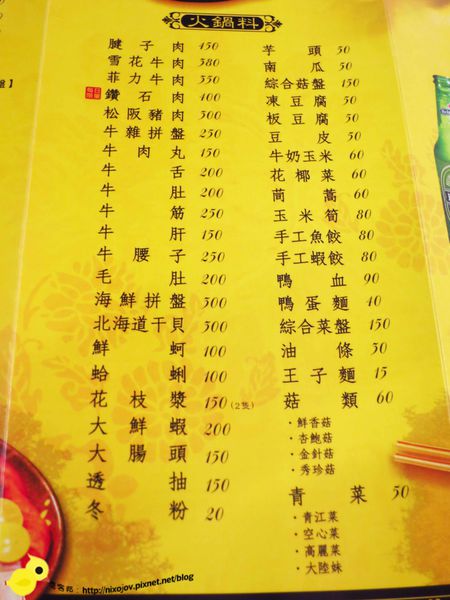 火鍋料
腱子肉 450
雪花牛肉 380
菲力牛肉 350
鑽石肉 400
松阪豬肉 300
牛雜拼盤 250
牛肉丸 150
牛舌 200
牛肚 200
牛筋 250
牛肝 150
牛腰子 250
毛肚 200
海鮮拼盤 500
北海道干貝 300
鮮蚵 100
蛤蜊 100
花枝漿 150(2隻)
大鮮蝦 200
大腸頭 150
透抽 150
冬粉 20
芋頭 50
南瓜 50
綜合菇盤 150
凍豆腐 50
板豆腐 50
豆皮 50
牛奶玉米 60
花椰菜 60
茼蒿 60
玉米筍 80
手工魚餃 80
手工蝦餃 80
鴨血 90
鴨蛋麵 40
綜合菜盤 150
油條 50
王子麵 15
菇類 60
・鮮香菇
・杏鮑菇
・金針菇
・秀珍菇
青菜 50
・青江菜
・空心菜
・高麗菜
・大陸妹
盤】
痞客邦：http://nixojov.pixnet.net/blog